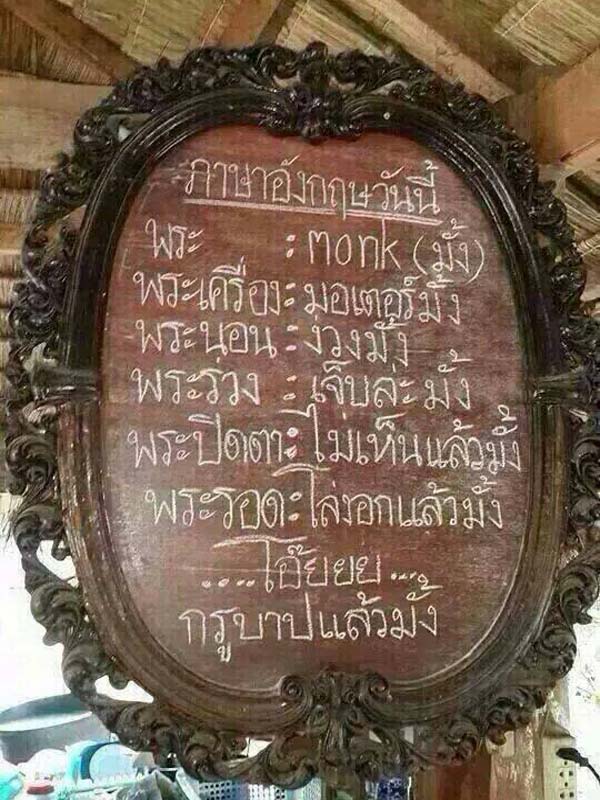 ภาษาอังกฤษวันนี้
พระ : monk (มั้ง)
พระเครื่อง : มอเตอร์มั้ง
พระนอน : ง่วงมั้ง
พระร่วง : เจ็บล่ะมั้ง
พระปิดตา : ไม่เห็นแล้วมั้ง
พระรอด : ไล่งอกแล้วมั้ง
....โอ๊ยยย...
กรูบาปแล้วมั้ง